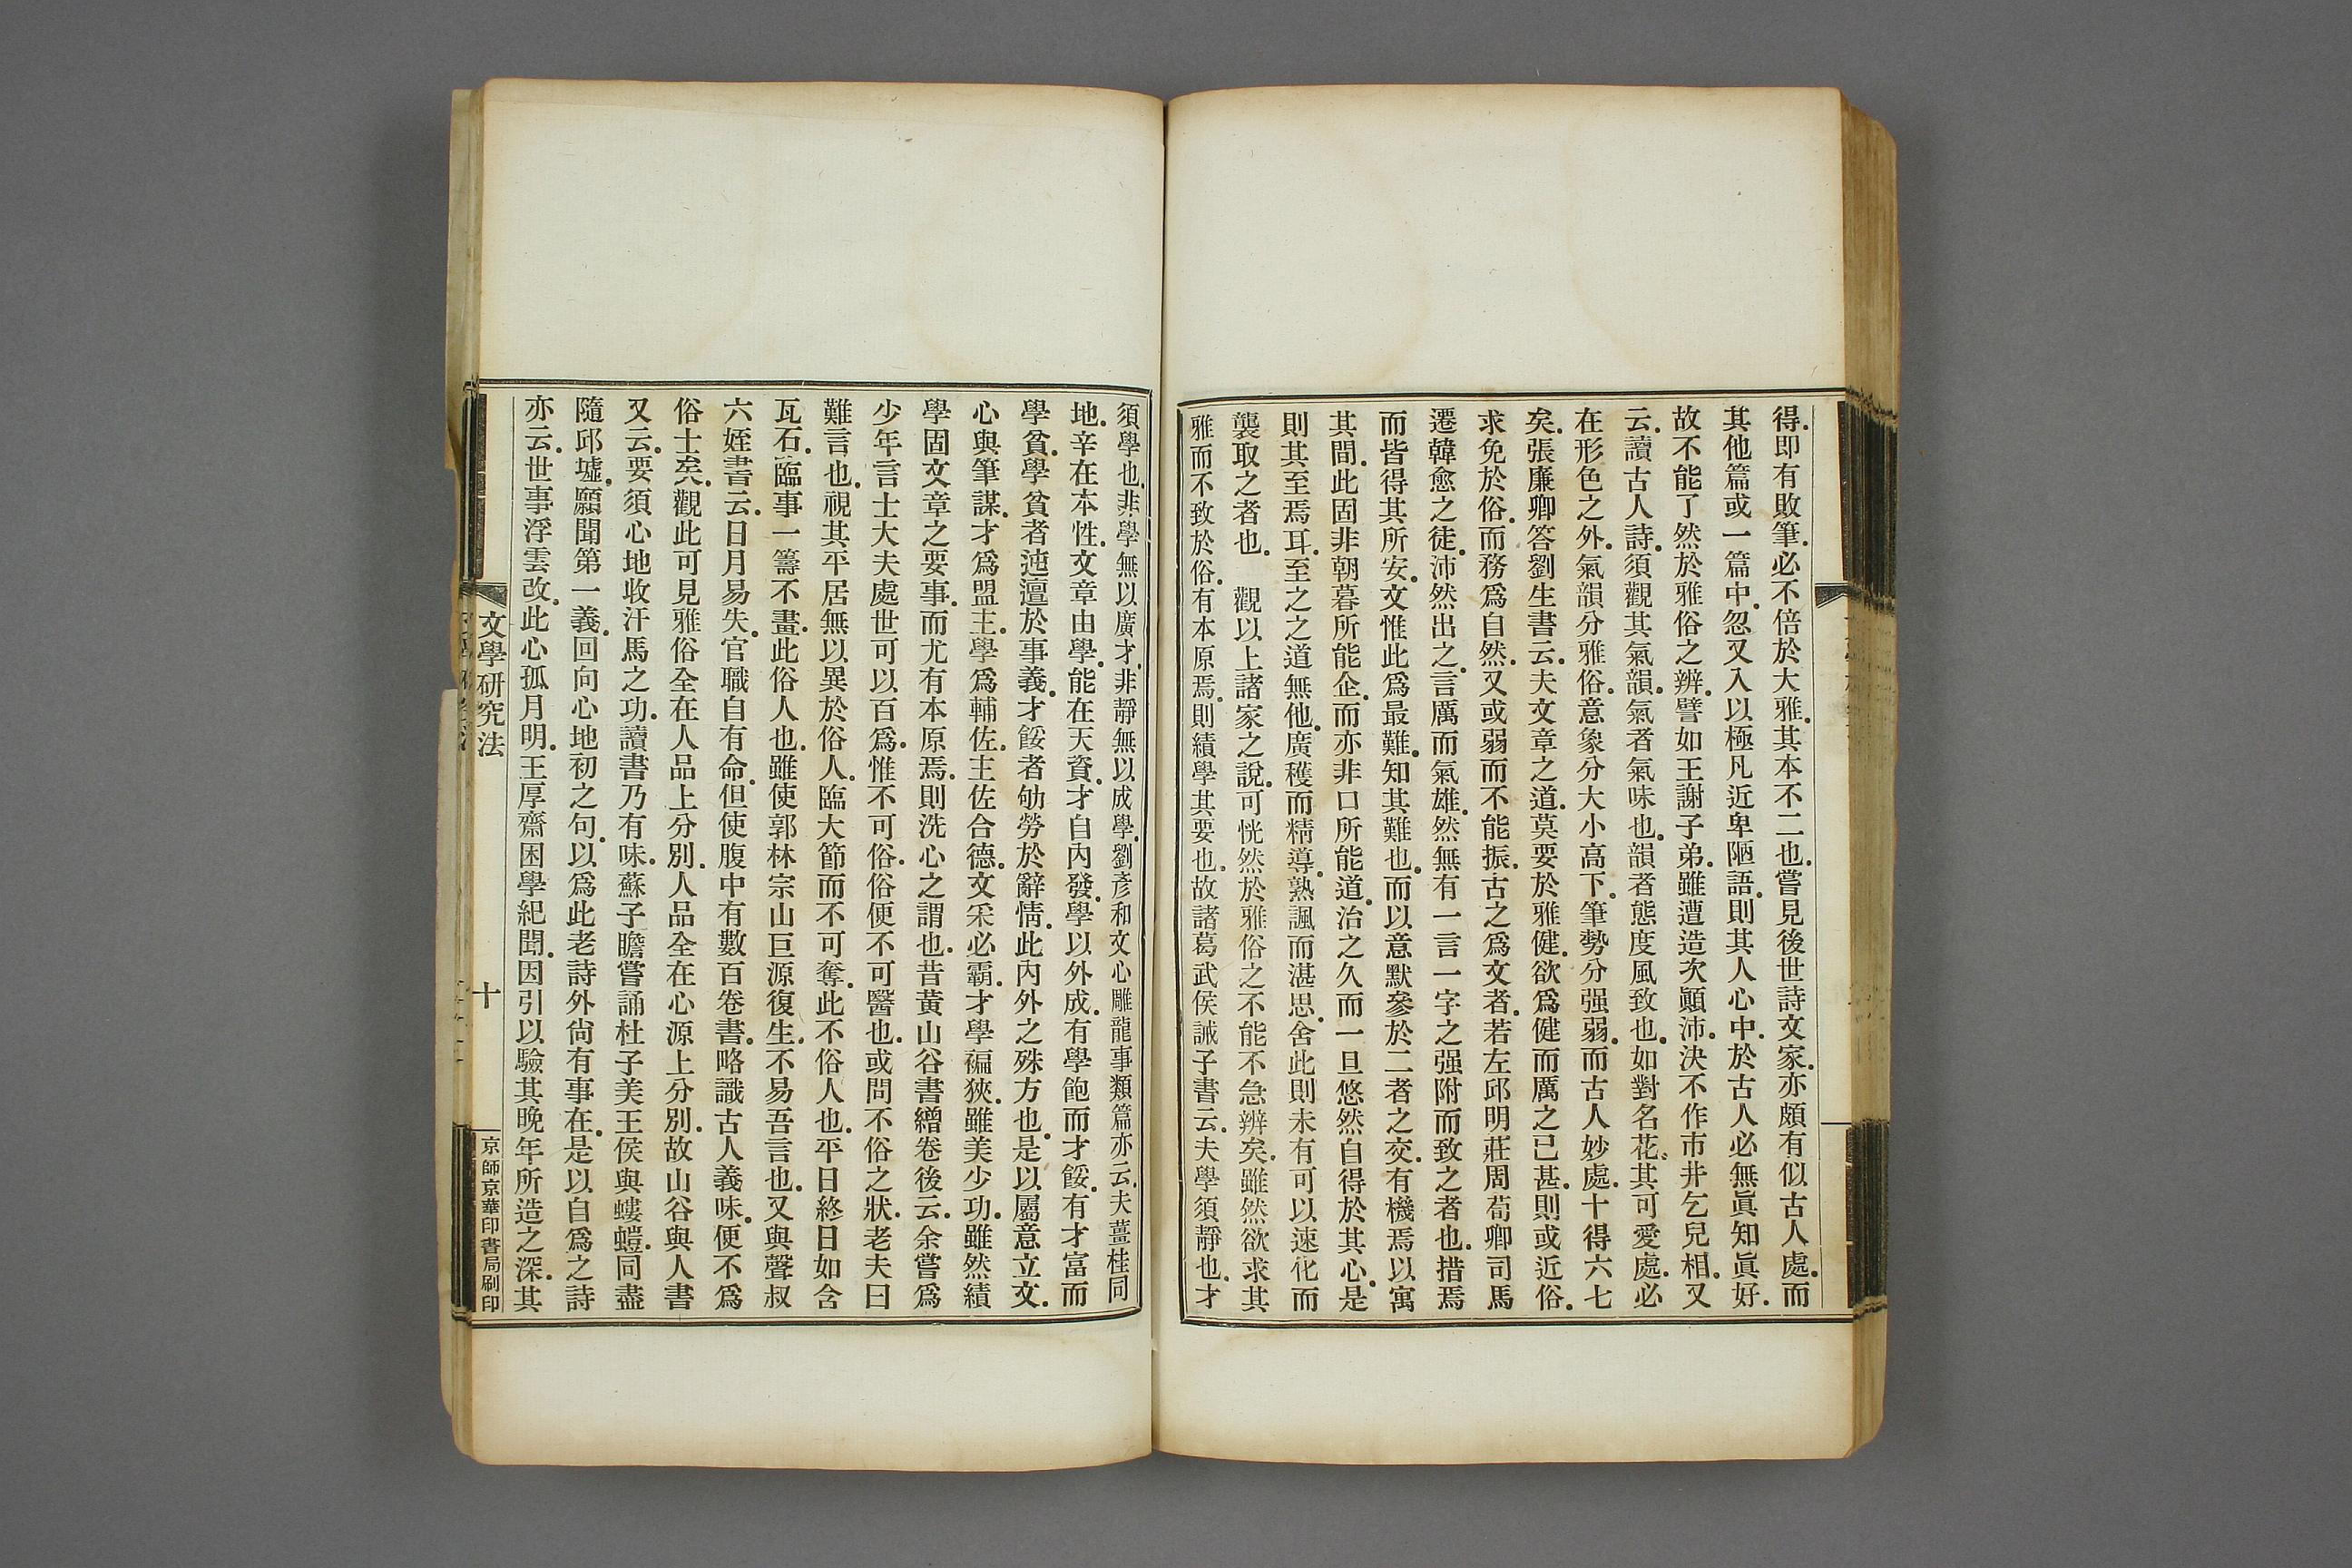 得。即有敗筆。必不倍於大雅。其本不二也。嘗見後世詩文家。亦頗有似古人處。而
其他篇或一篇中。忽又入以極凡近卑陋語。則其人心中。於古人必無眞知眞好。
故不能了然於雅俗之辨。譬如王謝子弟。雖遭造次顚沛。決不作市井乞兒相。又
云。讀古人詩。須觀其氣韻。氣者氣味也。韻者態度風致也。如對名花。其可愛處。必
在形色之外。氣韻分雅俗。意象分大小高下。筆勢分强弱。而古人妙處。十得六七
矣。張廉卿答劉生書云。夫文章之道。莫要於雅健。欲爲健而厲之已甚。則或近俗。
求免於俗。而務爲自然。又或弱而不能振。古之爲文者。若左邱明莊周荀卿司馬
遷韓愈之徒。沛然出之。言厲而氣雄。然無有一言一字之强附而致之者也。措焉
而皆得其所安。文惟此爲最難。知其難也。而以意默參於二者之交。有機焉以寓
其間。此固非朝暮所能企。而亦非口所能道。治之久而一旦悠然自得於其心。是
則其至焉耳。至之之道無他。廣穫而精導。熟諷而湛思。舍此則未有可以速化而
襲取之者也。　觀以上諸家之說。可恍然於雅俗之不能不急辨矣。雖然欲求其
雅而不致於俗。有本原焉。則績學其要也。故諸葛武侯誡子書云。夫學須靜也。才
須學也。非學無以廣才。非靜無以成學。劉彥和文心雕龍事類篇亦云。夫薑桂同
地。辛在本性。文章由學。能在天資。才自內發。學以外成。有學飽而才餒。有才富而
學貧。學貧者迍邅於事義。才餒者劬勞於辭情。此內外之殊方也。是以屬意立文。
心與筆謀。才爲盟主。學爲輔佐。主佐合德。文采必霸。才學褊狹。雖美少功。雖然績
學固文章之要事。而尤有本原焉。則洗心之謂也。昔黃山谷書繒卷後云。余嘗爲
少年言士大夫處世可以百爲。惟不可俗。俗便不可醫也。或問不俗之狀。老夫曰
難言也。視其平居無以異於俗人。臨大節而不可奪。此不俗人也。平日終日如含
瓦石。臨事一籌不畫。此俗人也。雖使郭林宗山巨源復生。不易吾言也。又與聲叔
六姪書云。日月易失。官職自有命。但使腹中有數百卷書。略識古人義味。便不爲
俗士矣。觀此可見雅俗全在人品上分別。人品全在心源上分別。故山谷與人書
又云。要須心地收汗馬之功。讀書乃有味。蘇子瞻嘗誦杜子美王侯與螻螘。同盡
隨邱墟。願聞第一義。回向心地初之句。以爲此老詩外尙有事在。是以自爲之詩
亦云。世事浮雲改。此心孤月明。王厚齋困學紀聞。因引以驗其晚年所造之深。其
文學研究法
十
京師京華印書局刷印